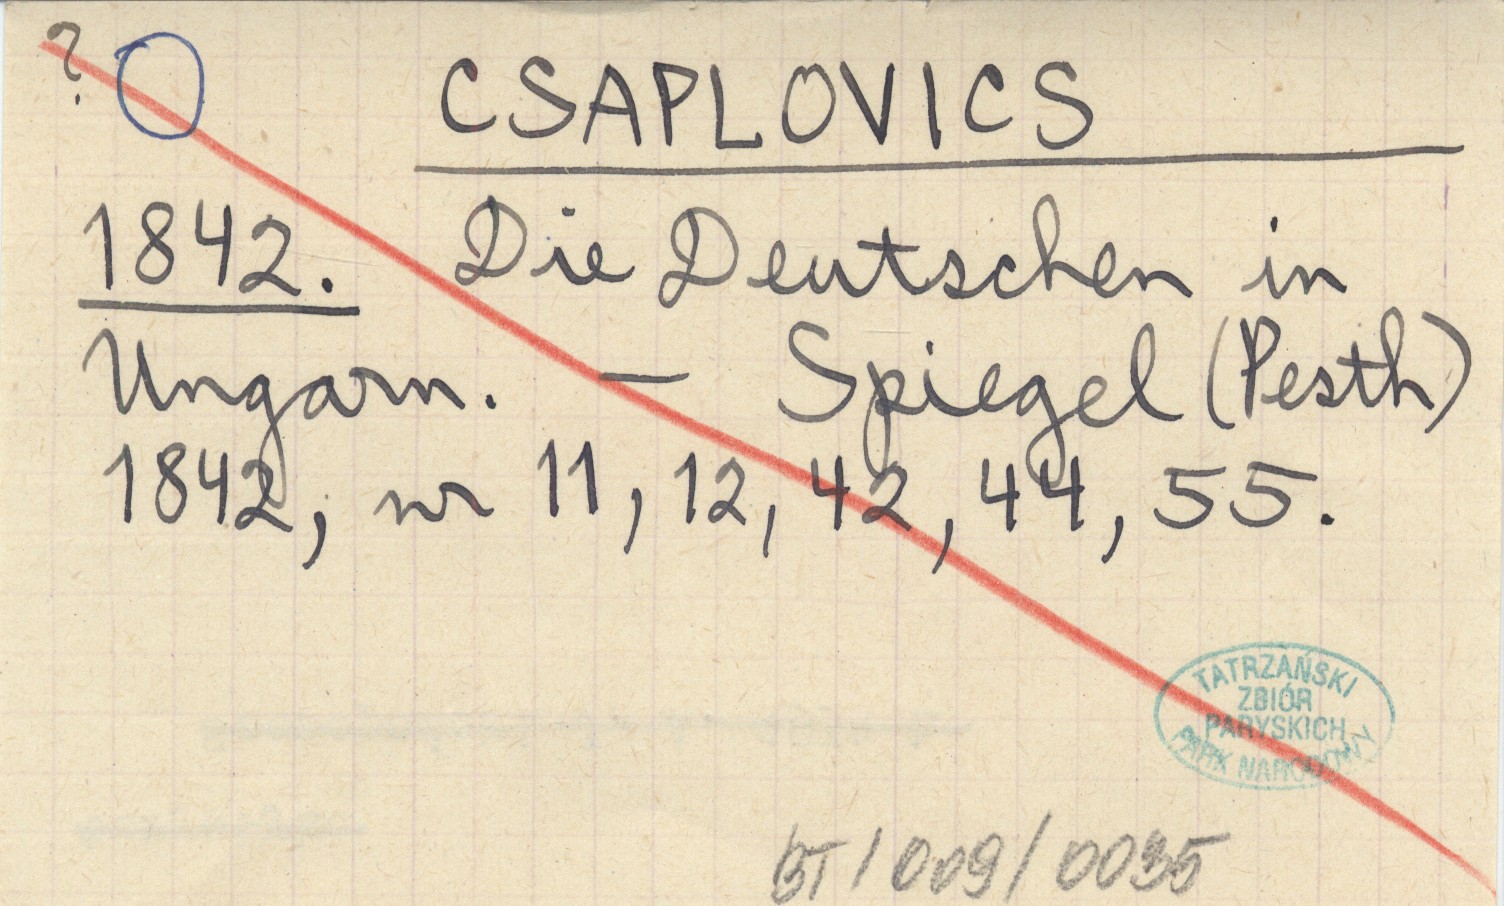 ?
CSAPLOVICS
1842. Die Deutschen in
Ungarn. — Spiegel (Pesth)
1842, nr 11, 12, 42, 44, 55.
TATRZAŃSKI
ZBIÓR
PARYSKICH
PARK NARODOWY
BT/009/0035